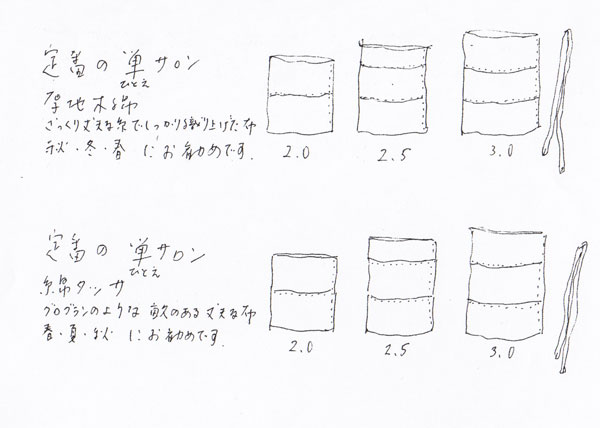 定番の単サロン
ひとえ
厚地木綿
ざっくり丈夫な糸でしっかり織り上げた布
秋・冬・春 にお勧めです.
2.0 2.5 3.0
定番の単サロン
ひとえ
綿タッサ
グログランのような畝のある丈夫な布
春・夏・秋 にお勧めです.
2.0 2.5 3.0